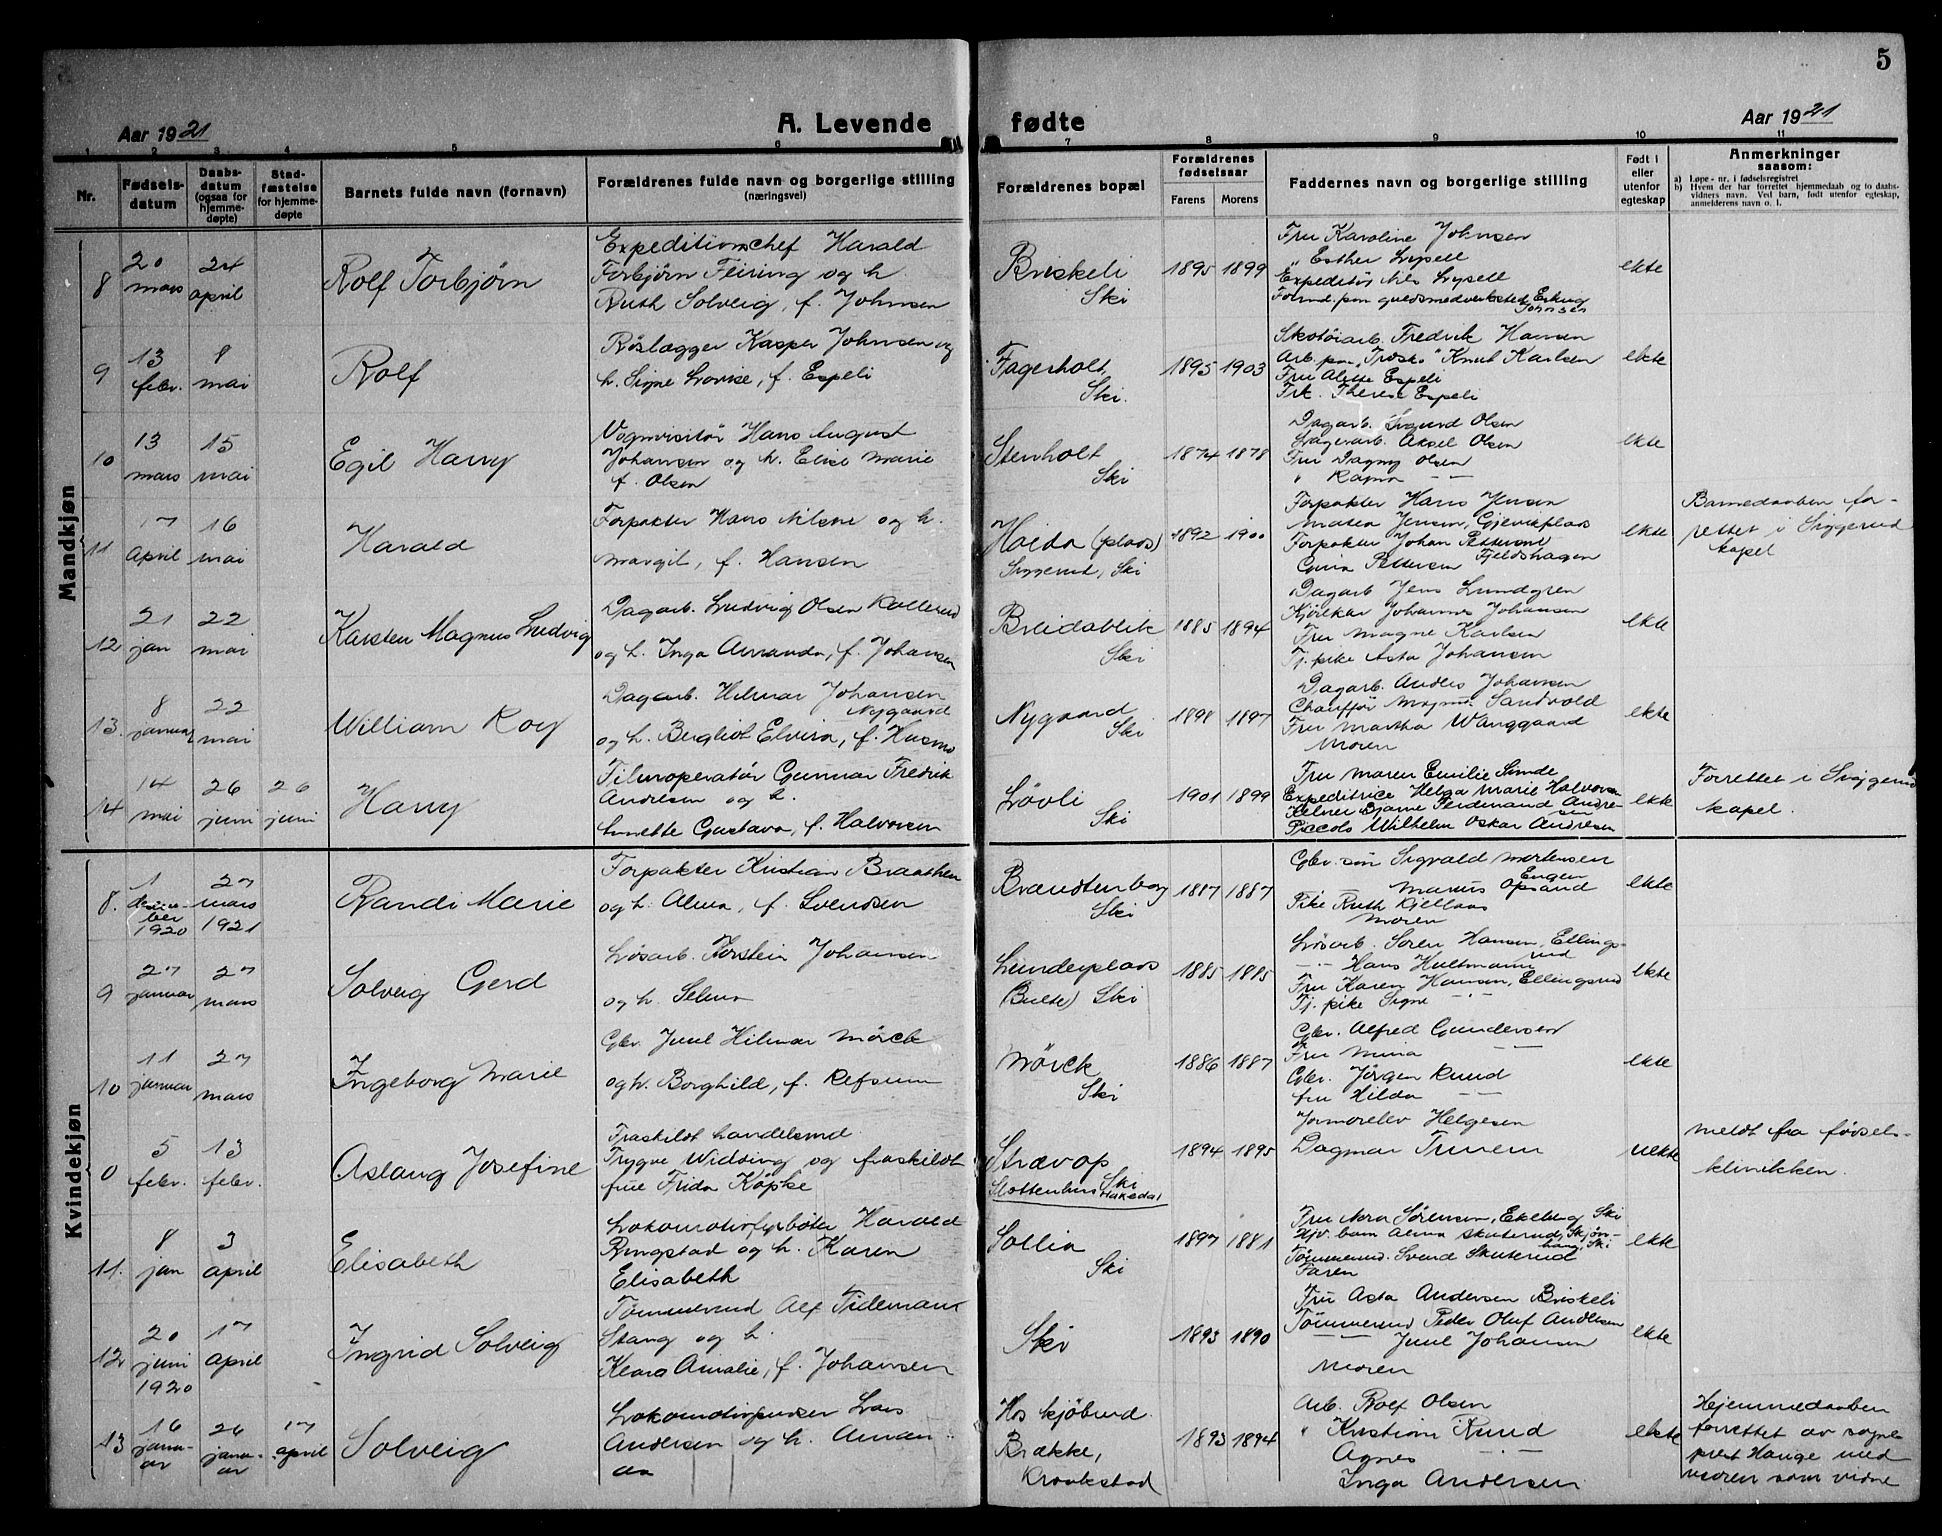 5
Aar 1921
A. Levende
fødte
Aar 1921
1 2 3 4 5 6 7 8 9 10 11
Nr.
Fødsels-
datum
Daabs-
datum
(ogsaa for
hjemme-
døpte)
Stad-
fæstelse
for hjemme-
døpte
Barnets fulde navn (fornavn)
Forældrenes fulde navn og borgerlige stilling
(næringsvei)
Forældrenes bopæl
Forældrenes
fødselsaar
Farens
Morens
Faddernes navn og borgerlige stilling
Født i
eller
utenfor
egteskap
Anmerkninger
saasom:
a) Løpe-nr. i fødselsregistret
b) Hvem der har forrettet hjemmedaab og to daabs-
vidners navn. Ved barn, født utenfor egteskap,
anmelderens navn o. l.
Mandkjøn
8
20
mars
24
april
Rolf Torbjørn
Expeditionschef Harald
Torbjørn Feiring og h.
Ruth Solveig, f. Johnsen
Briskeli
Ski
1895 1899
Fru Karoline Johnsen
" Esther Lysell
Expeditør Nils Lysell
Formd. paa guldsmedverksted Erling
Johnsen
ekte
9
13
febr.
8
mai
Rolf
Rørlægger Kasper Johnsen og
h. Signe Lovise, f. Espeli
Fagerholt,
Ski.
1895 1903
Skotøiarb. Fredrik Hansen
Arb. paa "Træsko" Knut Karlsen
Fru Alette Espeli
Frk. Therese Espeli
ekte
10
13
mars
15
mai
Egil Harry
Vognvisitør Hans August
Johansen og h. Elise Marie
f. Olsen
Stenholt
Ski
1874 1878
Dagarb. Sigurd Olsen
Lagerarb. Aksel Olsen
Fru Dagny Olsen
" Ragna - -
ekte
11
17
April
16
mai
Harald
Forpakter Hans Nilsen og h.
Margit, f. Hansen
Hoida (plads)
Siggerud, Ski
1892 1900
Forpakter Hans Jensen
Matea Jensen, Gjevikplads
Forpakter Johan Pettersen
Pettersen Fjeldshagen
ekte
Barnedaaben for-
rettet i Siggerud
kapel
12
21
jan
22
mai
Karsten Magnus Ludvig
Dagarb. Ludvig Olsen Kollerud
og h. Inga Amanda, f. Johansen
Breidablik
Ski
1885 1894
Dagarb. Jens Lundgren
Kjørekar Johannes Johansen
Fru Magne Karlsen
Tj. pike Asta Johansen
ekte
13.
8
januar
22
mai
William Roy
Dagarb. Hilmar Johansen
Nygaard
og h. Bergliot Elvira, f. Husmo
Nygaard
Ski
1898 1897
Dagarb. Anders Johansen
Chauffør Magnus Sandvold
Fru Martha Wanggaard
Moren
ekte
14
14
mai
26
juni
26
juni
Harry
Filmoperatør Gunnar Fredrik
Andresen og h.
Lunette Gustava, f. Halvorsen
Løvli
Ski
1901 1899
Fru Maren Emilie Simde
Expeditrice Helga Marie Halvorsen
Kelner Bjarne Ferdinand Andre-
sen
Piccolo Wilhelm Oskar Andresen
ekte
Forrettet i Siggerud
kapel.
Kvindekjøn
8.
1
desem-
ber
1920
27
mars
1921
Randi Marie
Forpakter Kristian Braathen
og h. Alma, f. Svendsen
Brandtenborg
Ski
1887 1887
Gbr. søn Sigvald Mortensen
Engen
Marius Opsand
Pike Ruth Kjellaas
Moren
ekte
9
27
januar
27
mars
Solveig Gerd
Løsarb. Torstein Johansen
og h. Selma
Lunderplads
(Bulte) Ski
1885 1885
Løsarb. Soren Hansen, Ellings-
rud
- - Hans Hultmann
Fru Karen Hansen, Ellingsrud
Tj. pike Signe - -
ekte
10
11
januar
27
mars
Ingeborg Marie
Gbr. Juul Hilmar Mörck
og h. Borghild, f. Refsum
Mörck
Ski
1886 1887
Gbr. Alfred Gundersen
Fru Mina - -
Gbr. Jørgen Ruud
fru Hilda - -
ekte
0
5
febr.
13
febr.
Aslaug Josefine
Fraskildt handelsmd.
Trygve Widding og fraskildt
frue Frida Köpke
Strævop
Ski
Slottenhus Hakedal
1894 1895
Jormorelev Helgesen
Dagmar Trunem
uekte
meldt fra fødsels-
klinikken.
11.
8
jan
3
april
Elisabeth
Lokomotivfyrbøter Harald
Ringstad og h. Karen
Elisabeth
Sollia
Ski
1897 1881
Fru Nora Sørensen, Ekeberg Ski
Hjv. barn Alma Skuterud, Skjøn-
haug, Ski
Tømmermd. Svend Skuterud
Faren
ekte
12
20
juni
1920
17
april
Ingrid Solveig
Tømmermd Alf Tideman
Stang og h.
Klara Amalie, f. Johansen
Ski
1893 1890
Fru Asta Andersen Briskeli
Tømmermd Peder Oluf Andersen
- - Juul Johansen
Moren
ekte
13
16
janu-
ar
26
janu-
ar
17
april
Solveig
Lokomotivpudser Lars
Andersen og h. Aman-
da
Hos kjöbmd.
Brække,
Kraakstad
1893 1894
Arb. Rolf Olsen
" Kristian Ruud
Agnes - -
Inga Andersen
ekte
Hjemmedaaben
forrettet av sogne
prest Hauge med
moren som vidne